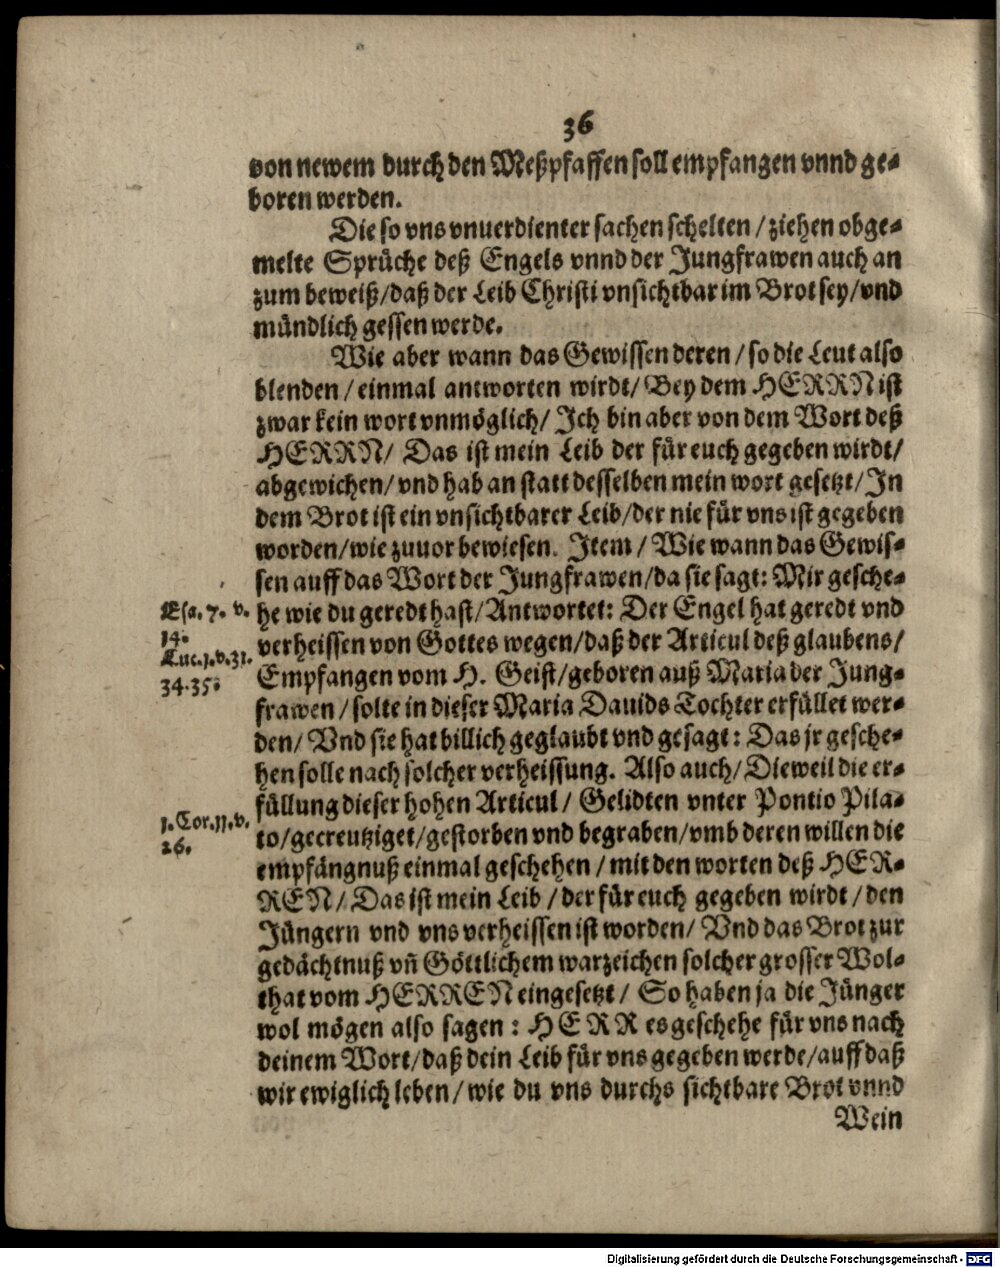 36
von newem durch den Meßpfaffen soll empfangen vnnd ge-
boren werden.
Die so vns vnuerdienter sachen schelten / ziehen obge-
melte Sprüche deß Engels vnnd der Jungfrawen auch an
zum beweiß / daß der Leib Christi vnsichtbar im Brot sey / vnd
mündlich gessen werde.
Wie aber wann das Gewissen deren / so die Leut also
blenden / einmal antworten wirdt / Bey dem HERRN ist
zwar kein wort vnmöglich / Ich bin aber von dem Wort deß
HERRN / Das ist mein Leib der für euch gegeben wirdt /
abgewichen / vnd hab an statt desselben mein wort gesetzt / In
dem Brot ist ein vnsichtbarer Leib / der nie für vns ist gegeben
worden / wie zuuor bewiesen. Item / Wie wann das Gewis-
sen auff das Wort der Jungfrawen / da sie sagt: Mir gesche-
he wie du geredt hast / Antwortet: Der Engel hat geredt vnd
verheissen von Gottes wegen / daß der Articul deß glaubens /
Empfangen vom H. Geist / geboren auß Maria der Jung-
frawen / solte in dieser Maria Dauids Tochter erfüllet wer-
den / Vnd sie hat billich geglaubt vnd gesagt: Das jr gesche-
hen solle nach solcher verheissung. Also auch / Dieweil die er-
füllung dieser hohen Articul / Gelidten vnter Pontio Pila-
to / gecreutziget / gestorben vnd begraben / vmb deren willen die
empfängnuß einmal geschehen / mit den worten deß HER-
REN / Das ist mein Leib / der für euch gegeben wirdt / den
Jüngern vnd vns verheissen ist worden / Vnd das Brot zur
gedächtnuß vñ Göttlichem warzeichen solcher grosser Wol-
that vom HERREN eingesetzt / So haben ja die Jünger
wol mögen also sagen: HERR es geschehe für vns nach
deinem Wort / daß dein Leib für vns gegeben werde / auff daß
wir ewiglich leben / wie du vns durchs sichtbare Brot vnnd
Wein
Esa. 7. v.
14.
Luc. 1. v. 31.
34. 35.
1. Cor. 11. v.
26.
Digitalisierung gefördert durch die Deutsche Forschungsgemeinschaft - DFG